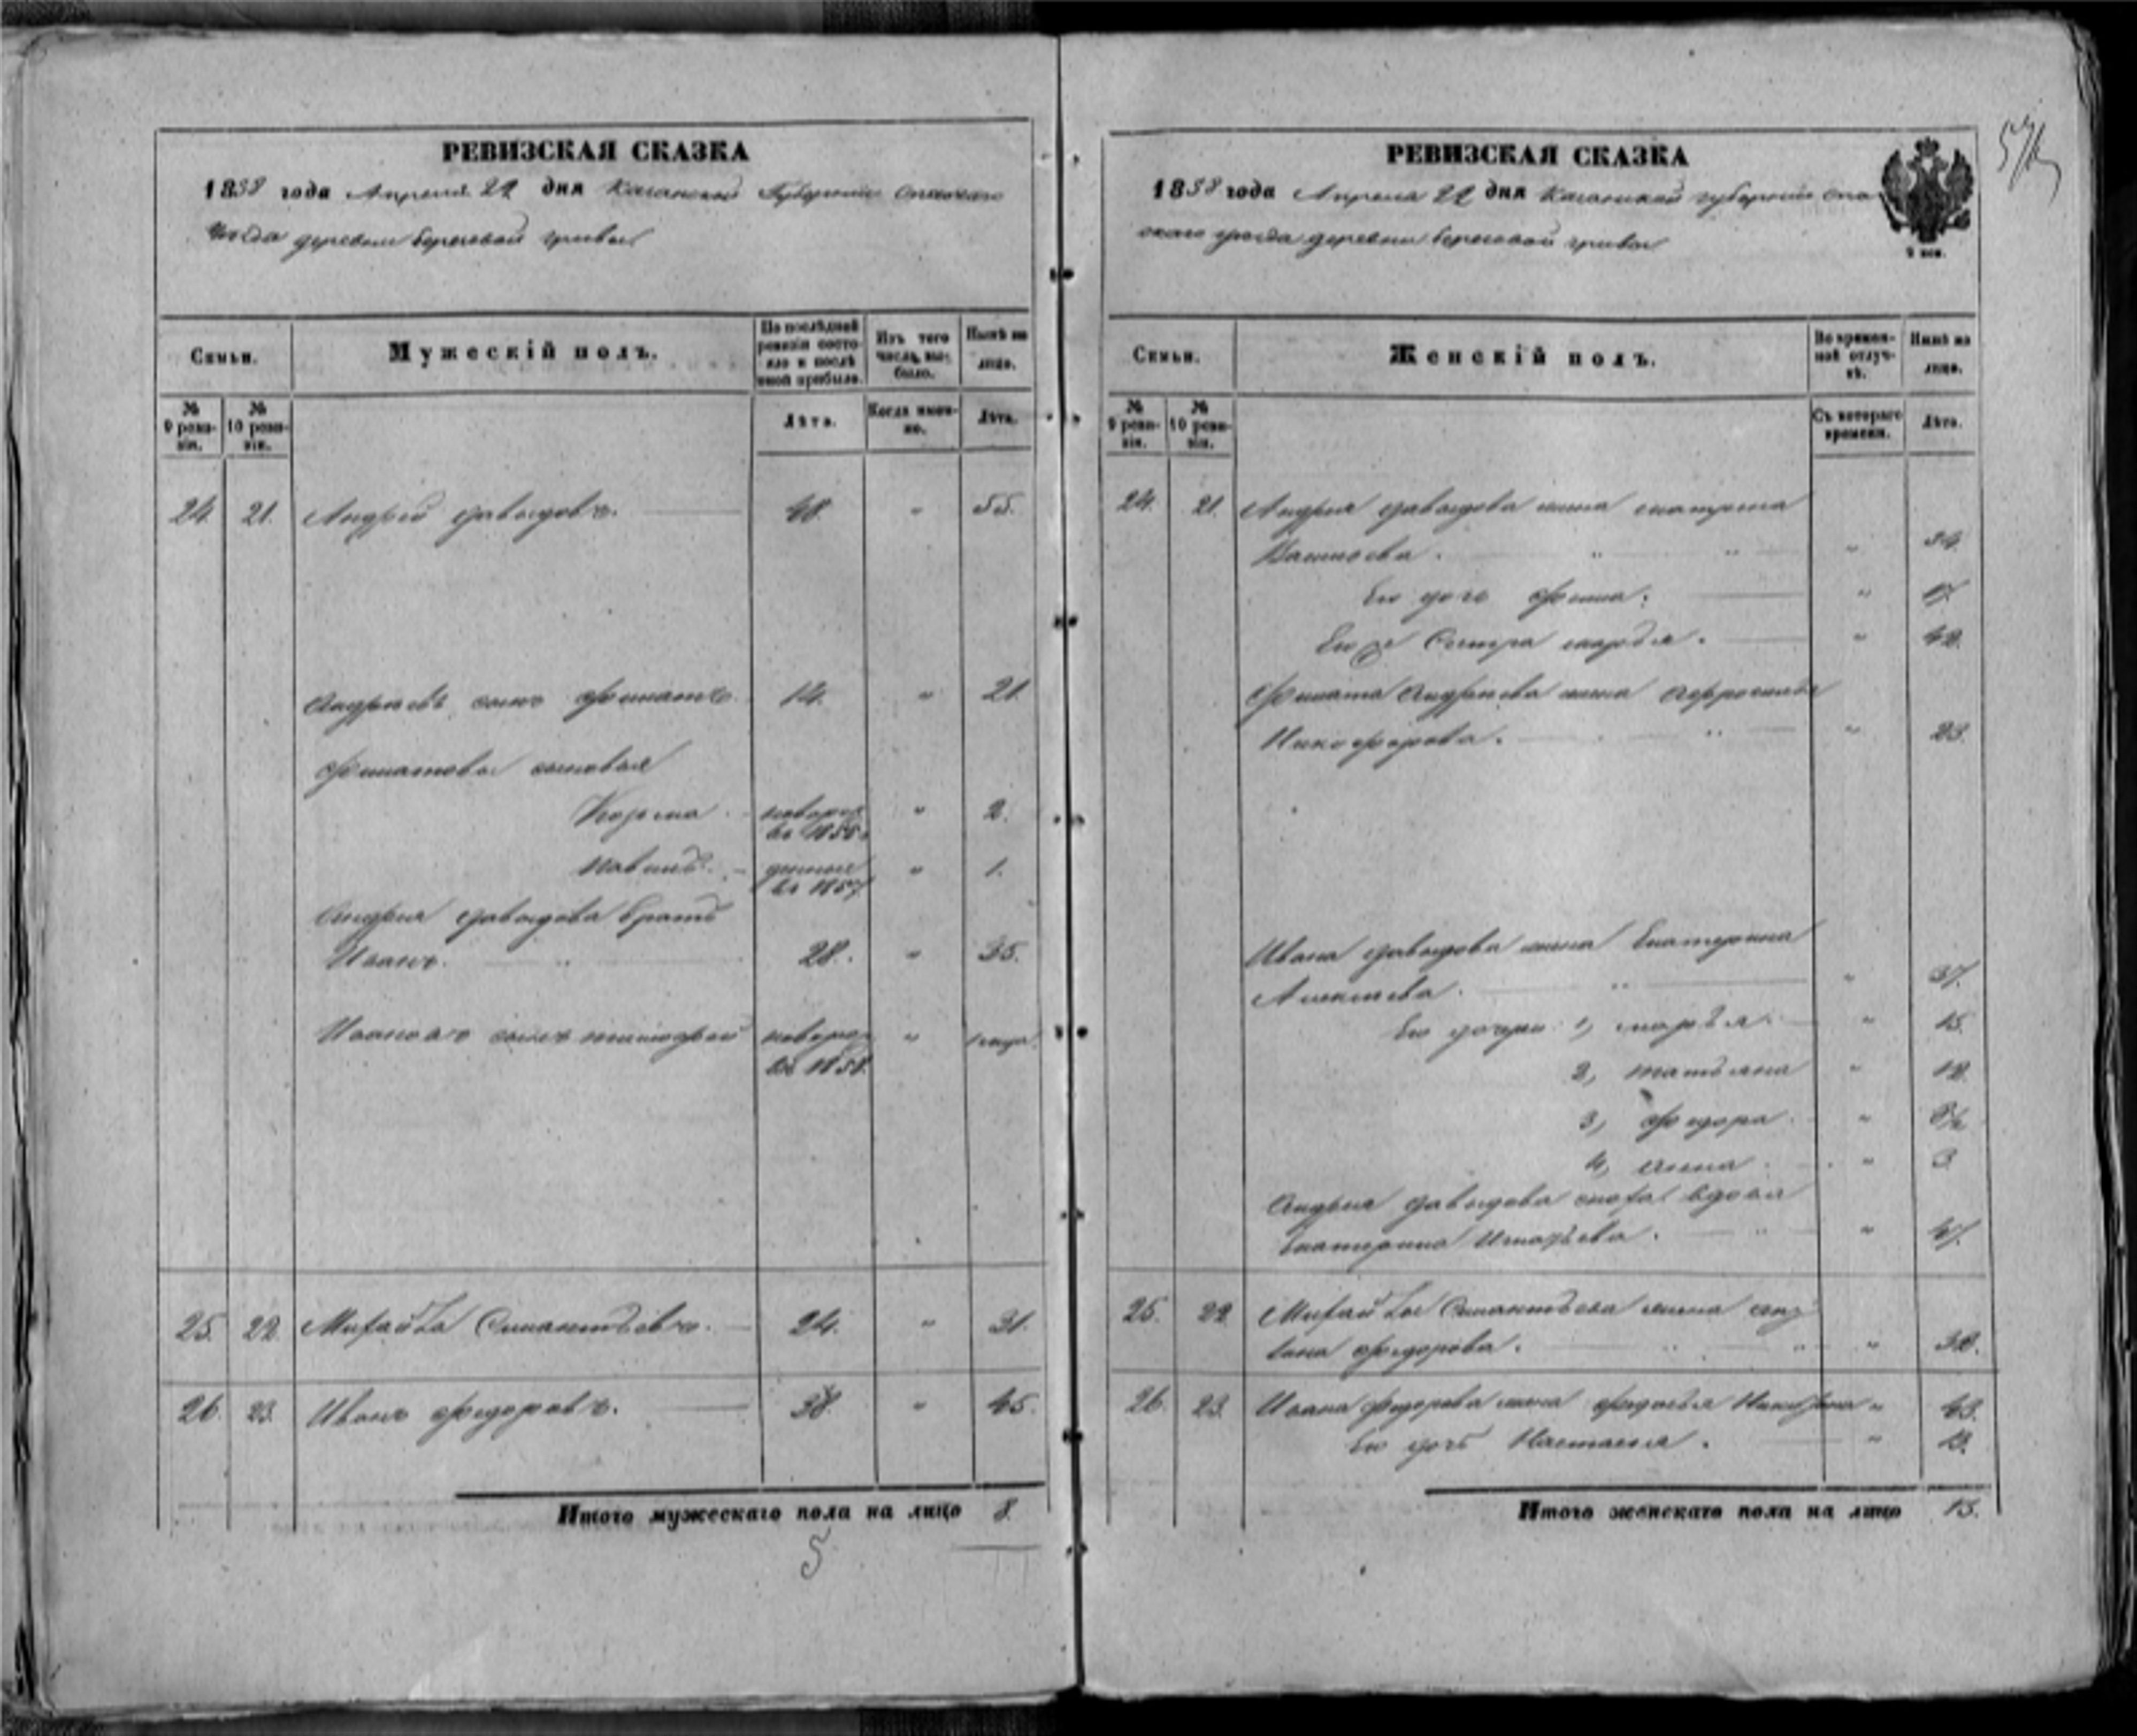 РЕВИЗСКАЯ СКАЗКА
1858 года Апреля 22 дня Казанской Губернии Спаскаго
Уезда деревни береговой гривы
Семьи.
Мужескій полъ.
По послѣдней ревизіи состояло и послѣ оной прибыло.
Изъ того числа выбыло.
Нынѣ на лицо.
№ 9 ревизіи.
№ 10 ревизіи.
Лѣта.
Когда именно.
Лѣта.
24. 21. Андрей давыдовъ. 48. " 55.
Андреевъ сынъ филатъ 14. " 21.
филатовы сыновья
Козма новорож " 2.
въ 1856
Павилъ денные " 1.
въ 1857
Андрея давыдова братъ
Иванъ. " 28. " 35.
Ивановъ сынъ тимофей новорож "
въ 1858.
25. 22. Михайла 24. " 31.
26. 23. Иванъ федоровъ. 38. " 45.
Итого мужескаго пола на лицо 8.
5
РЕВИЗСКАЯ СКАЗКА
1858 года Апреля 22 дня Казанской губернии спа
скаго уезда деревни береговой гривы
Семьи.
Женскій полъ.
Во временной отлучкѣ.
Нынѣ на лицо.
№ 9 ревизіи.
№ 10 ревизіи.
Съ котораго времени.
Лѣта.
24. 21. Андрея давыдова жена матрена
" " "
Ево дочь "
Ево же Сестра марья. " 42.
Филата Андреева жена Афросинья
Никофорова. " " 23.
Ивана давыдова жена Екатерина
Алексеева. " " 37.
Ево дочери 1, марья. " 15.
2, татьяна " 12.
3, федора "
4, анна. " 3
Андрея давыдова сноха вдова
Екатерина " "
25. 22. Михайлы жена
федорова. " " "
26. 23. Ивана федорова жена федосья " 43.
Ево дочь Настасья. "
Итого женскаго пола на лицо 13.